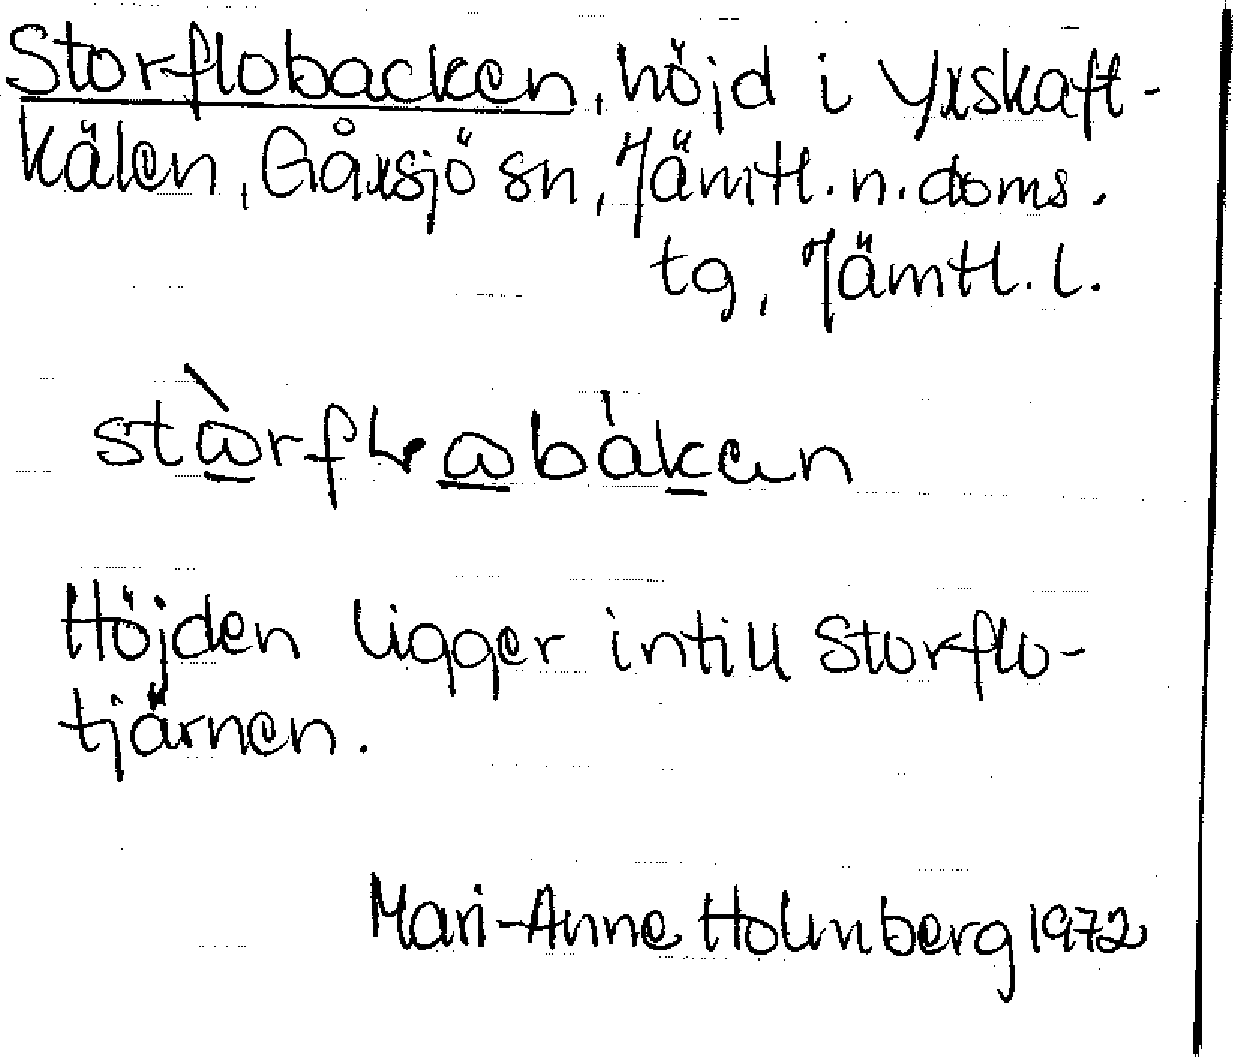 Storflobacken, höjd i Yxskaft-
kälen, Gåxsjö sn, Jämtl. n. doms.
tg, Jämtl. l.
Höjden ligger intill Storflo-
tjärnen.
Mari-Anne Holmberg 1972